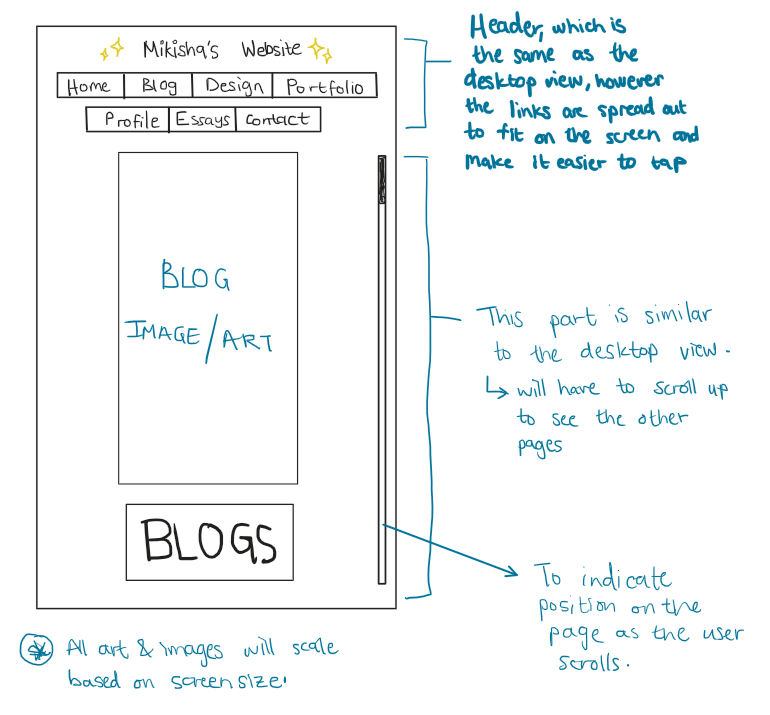 Mikisha's Website
Home Blog Design Portfolio
Profile Essays Contact
BLOG
IMAGE/ART
BLOGS
Header, which is
the same as the
desktop view, however
the links are spread out
to fit on the screen and
make it easier to tap
This part is similar
to the desktop view.
will have to scroll up
to see the other
pages
To indicate
position on the
page as the user
scrolls.
All art & images will scale
based on screen size.